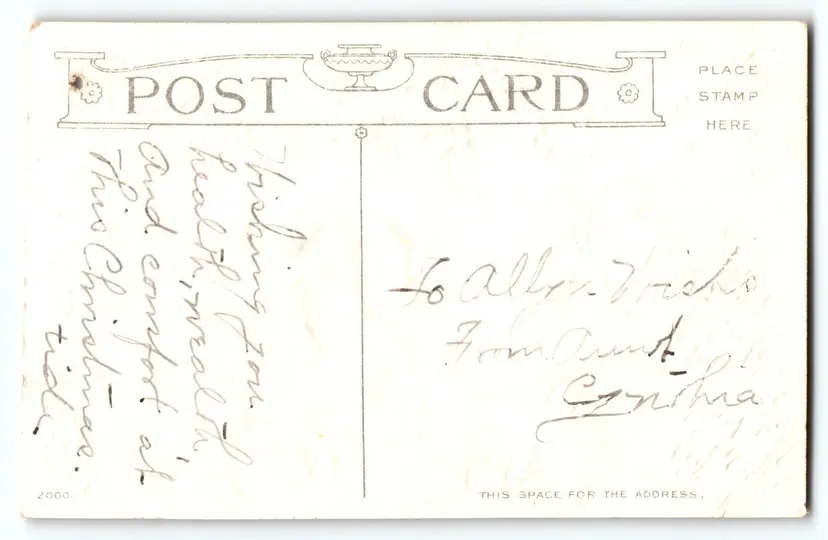 POST CARD
PLACE
STAMP
HERE
Wishing you
health, wealth
and comfort at
This Christmas.
tide,
To Alton
From Aunt
Cynthia
2000.
THIS SPACE FOR THE ADDRESS.